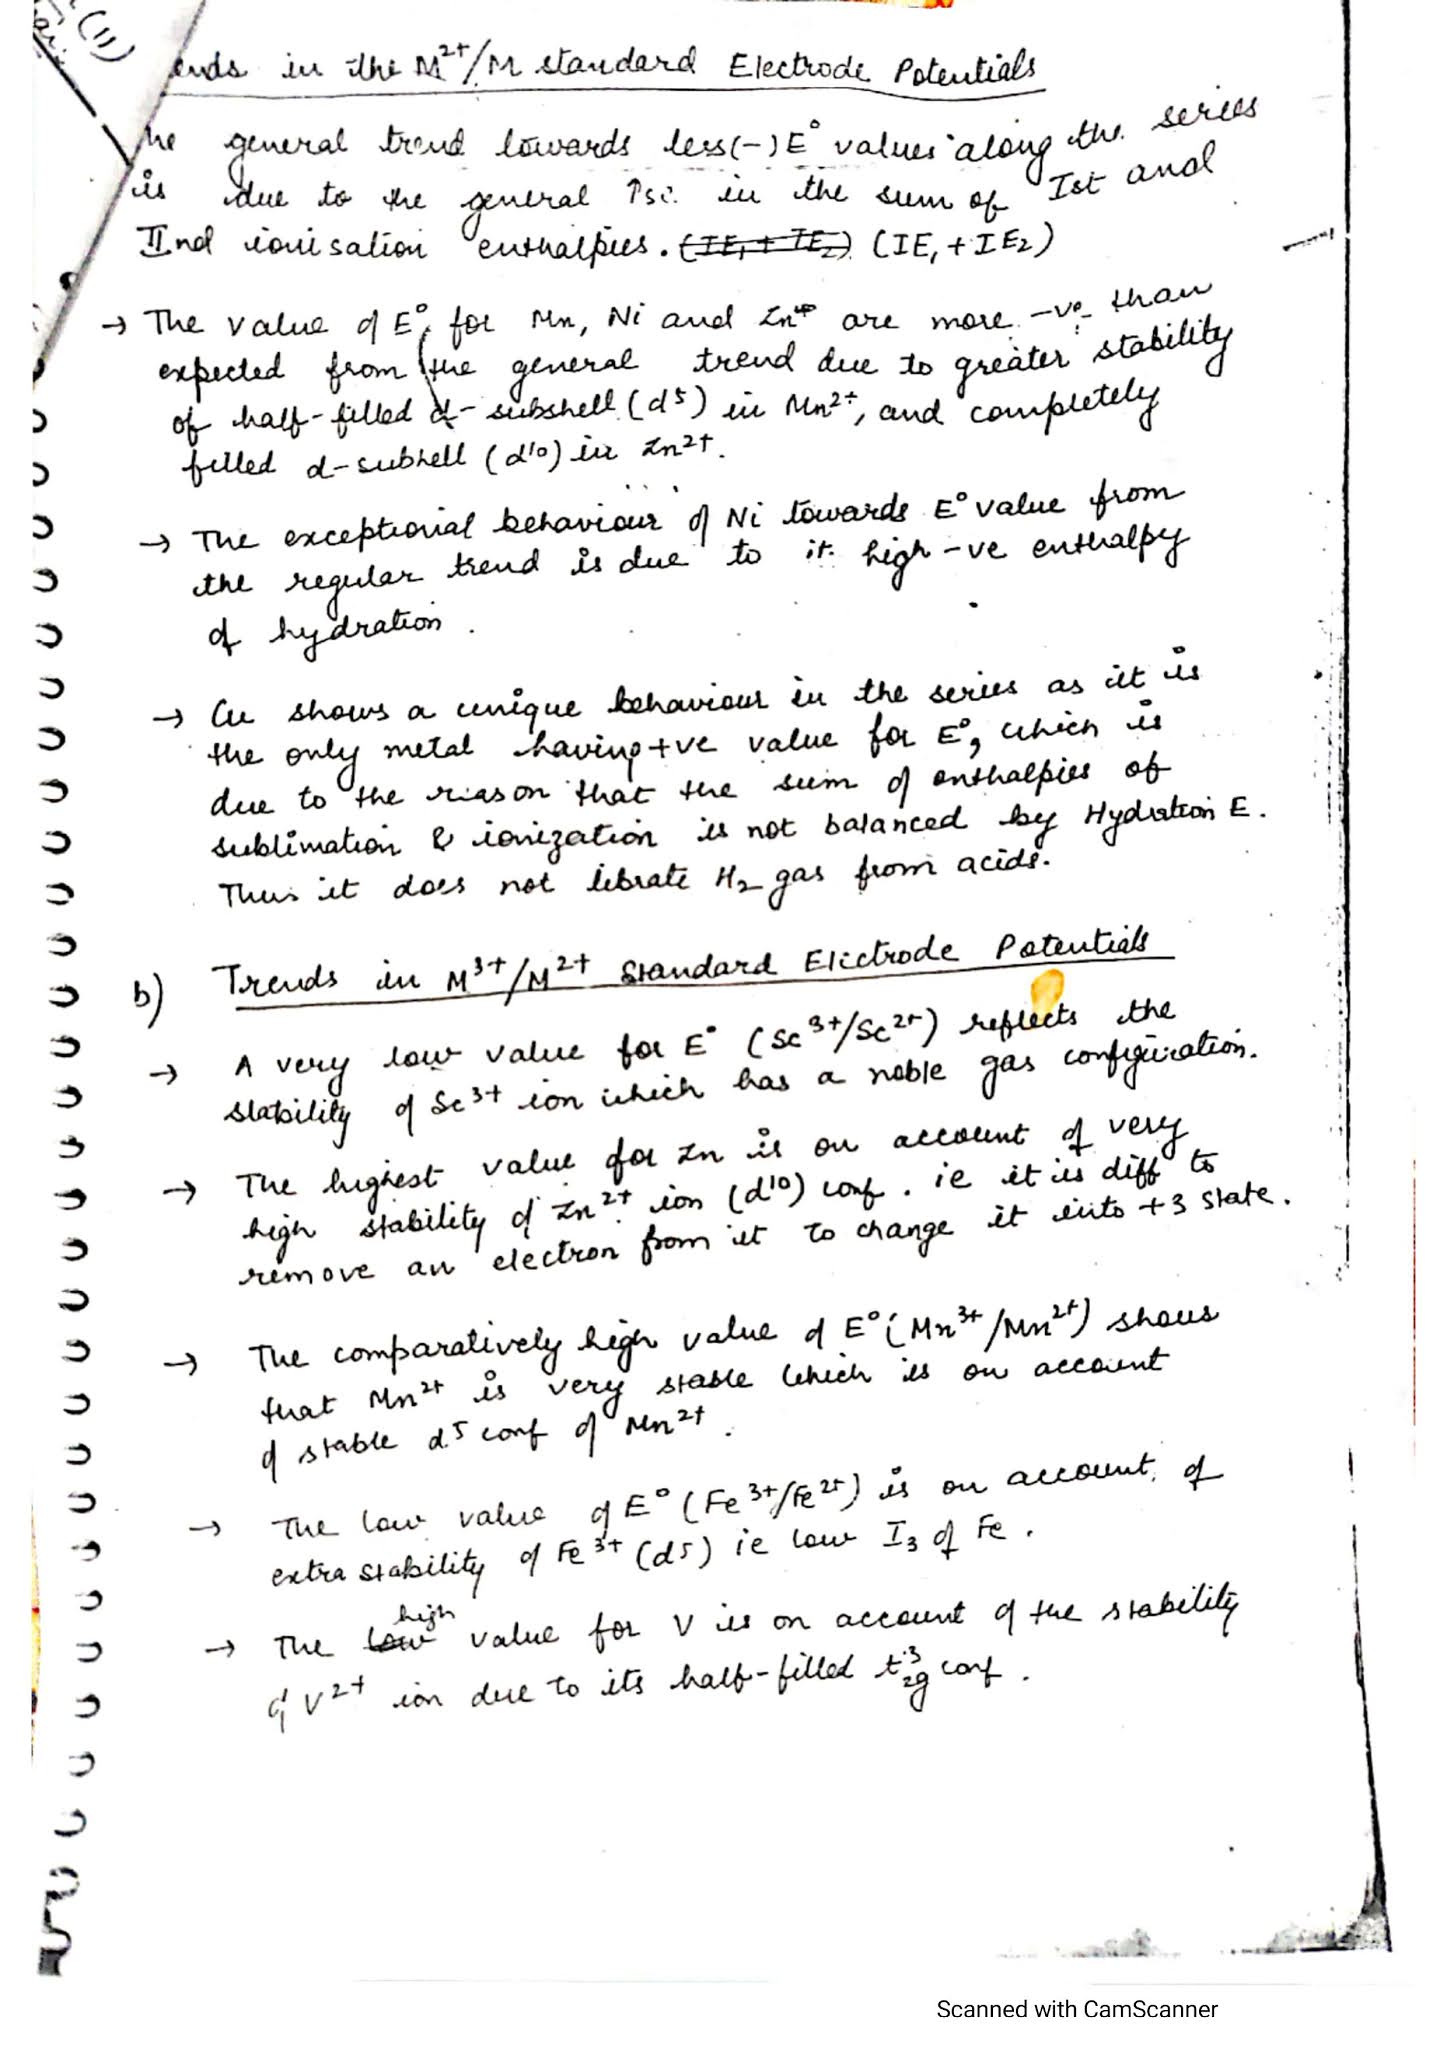 (11)
ends in the M²⁺/M standard Electrode Potentials
he general trend towards less(-) E° values along the series
is due to the general ↑se in the sum of Ist and
IInd ionisation enthalpies. (IE₁ + IE₂) (IE₁ + IE₂)
→ The value of E° for Mn, Ni and Zn are more -ve than
expected from the general trend due to greater stability
of half-filled d-subshell (d⁵) in Mn²⁺, and completely
filled d-subhell (d¹⁰) in Zn²⁺.
→ The exceptional behaviour of Ni towards E° value from
the regular trend is due to it high -ve enthalpy
of hydration.
→ Cu shows a unique behaviour in the series as it is
the only metal having +ve value for E°, which is
due to the reason that the sum of enthalpies of
sublimation & ionization is not balanced by Hydration E.
Thus it does not librate H₂ gas from acids.
b) Trends in M³⁺/M²⁺ Standard Electrode Potentials
→ A very low value for E° (Sc³⁺/Sc²⁺) reflects the
stability of Sc³⁺ ion which has a noble gas configuration.
→ The highest value for Zn is on account of very
high stability of Zn²⁺ ion (d¹⁰) conf. ie it is diff to
remove an electron from it to change it into +3 state.
→ The comparatively high value of E° (Mn³⁺/Mn²⁺) shows
that Mn²⁺ is very stable which is on account
of stable d⁵ conf of Mn²⁺.
→ The low value of E° (Fe³⁺/Fe²⁺) is on account of
extra stability of Fe³⁺ (d⁵) ie low I₃ of Fe.
→ The low high value for V is on account of the stability
of V²⁺ ion due to its half-filled t₂g³ conf.
Scanned with CamScanner